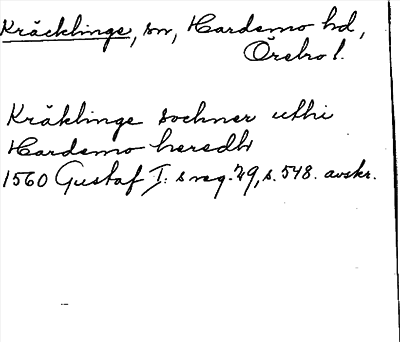 Kräcklinge, sn, Hardemo hd,
Örebro l.
Kräklinge sochner uthi
Hardemo heredh
1560 Gustaf I:s reg. 29, s. 548. avskr.